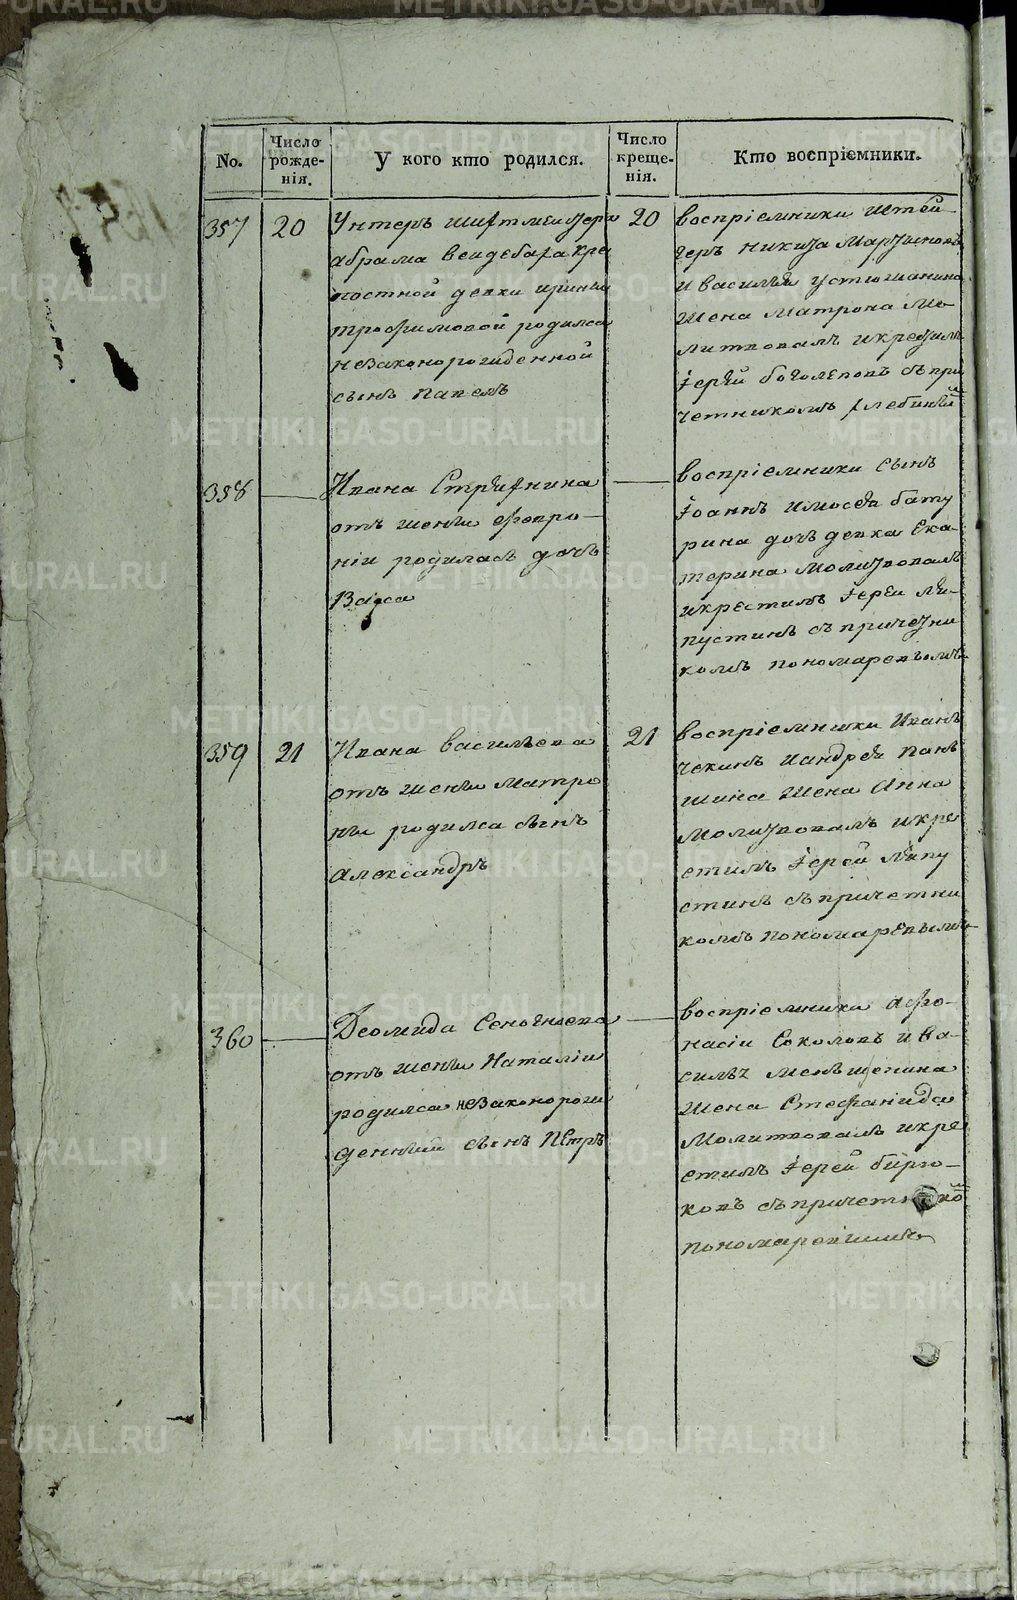 No.
Число рожде-нія.
У кого кто родился.
Число креще-нія.
Кто воспріемники.
357
20
Унтеръ шихтмейстера
абрама
кре
постной девки ирины
трофимовой родился
незаконорожденной
сынъ павелъ
20
воспріемники штей
геръ никита мартьяновъ
и василья устюжанина
жена матрона мо-
литвовалъ икрестилъ
Іерей боголеповъ съ при
четникомъ
358
Ивана
отъ жены февро-
ніи родилась дочь
Васса
воспріемники сынъ
Іоаннъ имосея бату
рина дочь девка ека-
терина молитвовалъ
икрестилъ Іерей ля-
пустинъ съ причетни
комъ пономаревымъ
359
21
Ивана васильева
отъ жены матро
ны родился сынъ
александръ
21
воспріемники Иванъ
чекинъ иандрея пань
шина жена Анна
молитвовалъ икре
стилъ Іерей ляпу
стинъ съ причетни
комъ пономаревымъ
360
Деомида
отъ жены наталіи
родился незаконорож
денный сынъ Петръ
воспріемники афо-
насіи соколовъ ива
силья меньшенина
жена Стефанида
молитвовалъ икре
стилъ Іерей бирю-
ковъ съ причетникомъ
пономаревымъ
METRIKI.GASO-URAL.RU